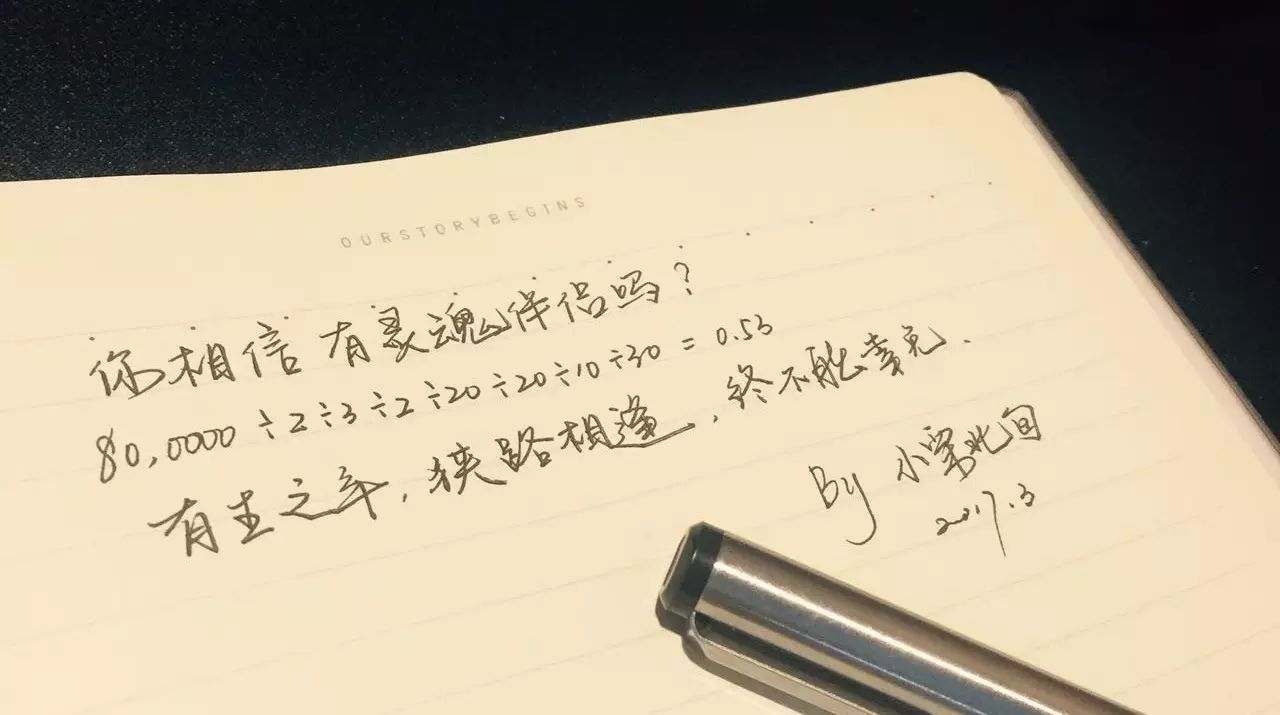 OURSTORYBEGINS
你相信有灵魂伴侣吗?
80,0000÷2÷3÷2÷20÷20÷10÷30=0.53
有生之年,狭路相逢,终不能幸免.
By 小北
2017.3